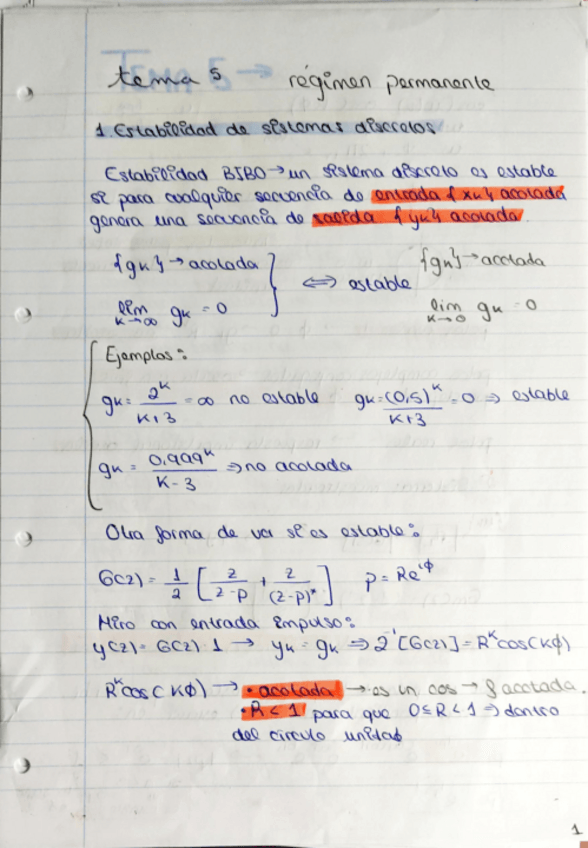 tema 5 régimen permanente
1. Estabilidad de sistemas discretos
Estabilidad BIBO → un sistema discreto es estable
si para cualquier secuencia de entrada {xk} acotada
genera una secuencia de salida {yk} acotada.
{gk} → acotada {gk} → acotada
⇔ estable
lim k→∞ gk = 0 lim k→0 gk = 0
Ejemplos:
gk = 2^k / (k+3) = ∞ no estable gk = (0,5)^k / (k+3) = 0 ⇒ estable
gk = 0,999^k / (k-3) ⇒ no acotada
Otra forma de ver si es estable:
G(z) = 1/2 [ z/(z-p) + z/(z-p)* ] p = Re^iϕ
Miro con entrada impulso:
y(z) = G(z) · 1 → yk = gk ⇒ z^-1 [G(z)] = R^k cos(kϕ)
R^k cos(kϕ) → • acotada → es un cos → si acotada
• R < 1 para que 0 ≤ R < 1 ⇒ dentro
del circulo unidad
1